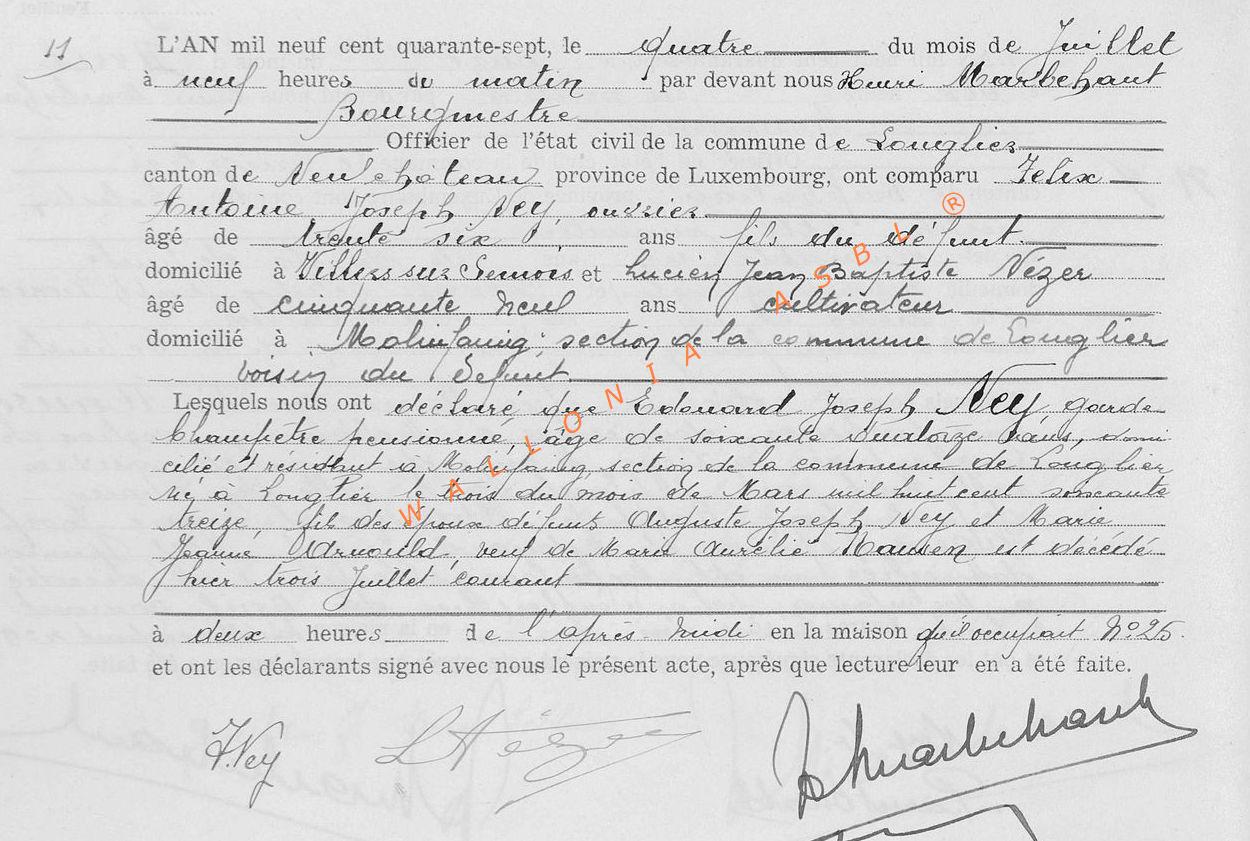 11
L'AN mil neuf cent quarante-sept, le quatre du mois de Juillet
à neuf heures du matin par devant nous Henri Marbehant
Bourgmestre
Officier de l'état civil de la commune de Longlier
canton de Neufchâteau province de Luxembourg, ont comparu Felix
Antoine Joseph Ney, ouvrier
âgé de trente six ans fils du défunt
domicilié à Villers sur Semois et Lucien Jean Baptiste Nézer
âgé de cinquante neuf ans cultivateur
domicilié à Molinfaing, section de la commune de Longlier
voisin du défunt
Lesquels nous ont déclaré que Edouard Joseph Ney garde
Champêtre pensionné, âgé de soixante quatorze ans, domi
cilié et résidant à Molinfaing, section de la commune de Longlier
né à Longlier le trois du mois de Mars mil huit cent soixante
treize, fils des époux défunts Auguste Joseph Ney et Marie
Jeanne Arnould, veuf de Marie Aurélie Hansen est décédé
hier trois Juillet courant
à deux heures de l'après-midi en la maison qu'il occupait N° 25.
et ont les déclarants signé avec nous le présent acte, après que lecture leur en a été faite.
F. Ney
HMarbehant
WALLONIA ASBL ®